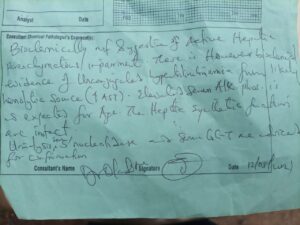 Analyst
Date
Date
Consultant Chemical Pathologist's Expression:
Biochemically not suggestive of Active Hepatic
parenchymatous impairment. There is However biochem
evidence of Unconjugated hyperbilirubinemia from likely
hemolytic source (↑AST). Elevated Serum Alk. phos. is
as expected for Age. The Hepatic synthetic functions
are intact.
Urinalysis, 5'nucleotidase and Serum GGT are advised
for confirmation
Consultant's Name Signature Date 12/08